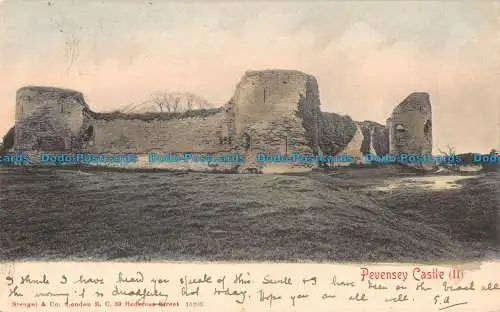 Dodo-Postcards Dodo-Postcards Dodo-Postcards Dodo-Postcards Dodo-Postcards Dodo-Postcards
Pevensey Castle (II)
I think I have heard you speak of this. Smile & I have been on the Beach all
the morning it is dreadfully hot today. Hope you are all well. E.A
Stengel & Co., London E. C. 39 Redcross Street 15203